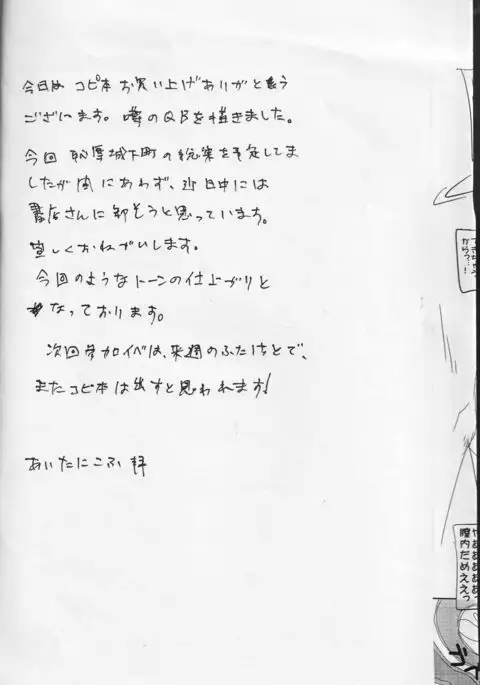 今日は コピ本 お買い上げありがとう
ございます。噂のQBを描きました。
今回 恥辱城下町の総集を予定してま
したが間にあわず、近日中には
書店さんに卸そうと思っています。
宜しくおねがいします。
今回のようなトーンの仕上がりと
なっております。
次回参加イベは、来週のふたけっとで、
またコピ本は出すと思われます!
あいたにこふ 拝
からっ…!
やああああああっ
膣内だめええっ